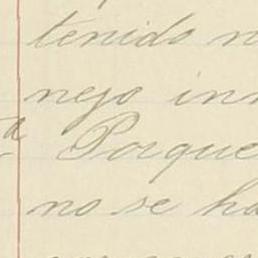 tenido n
nejo inn
a Porque
no se ha